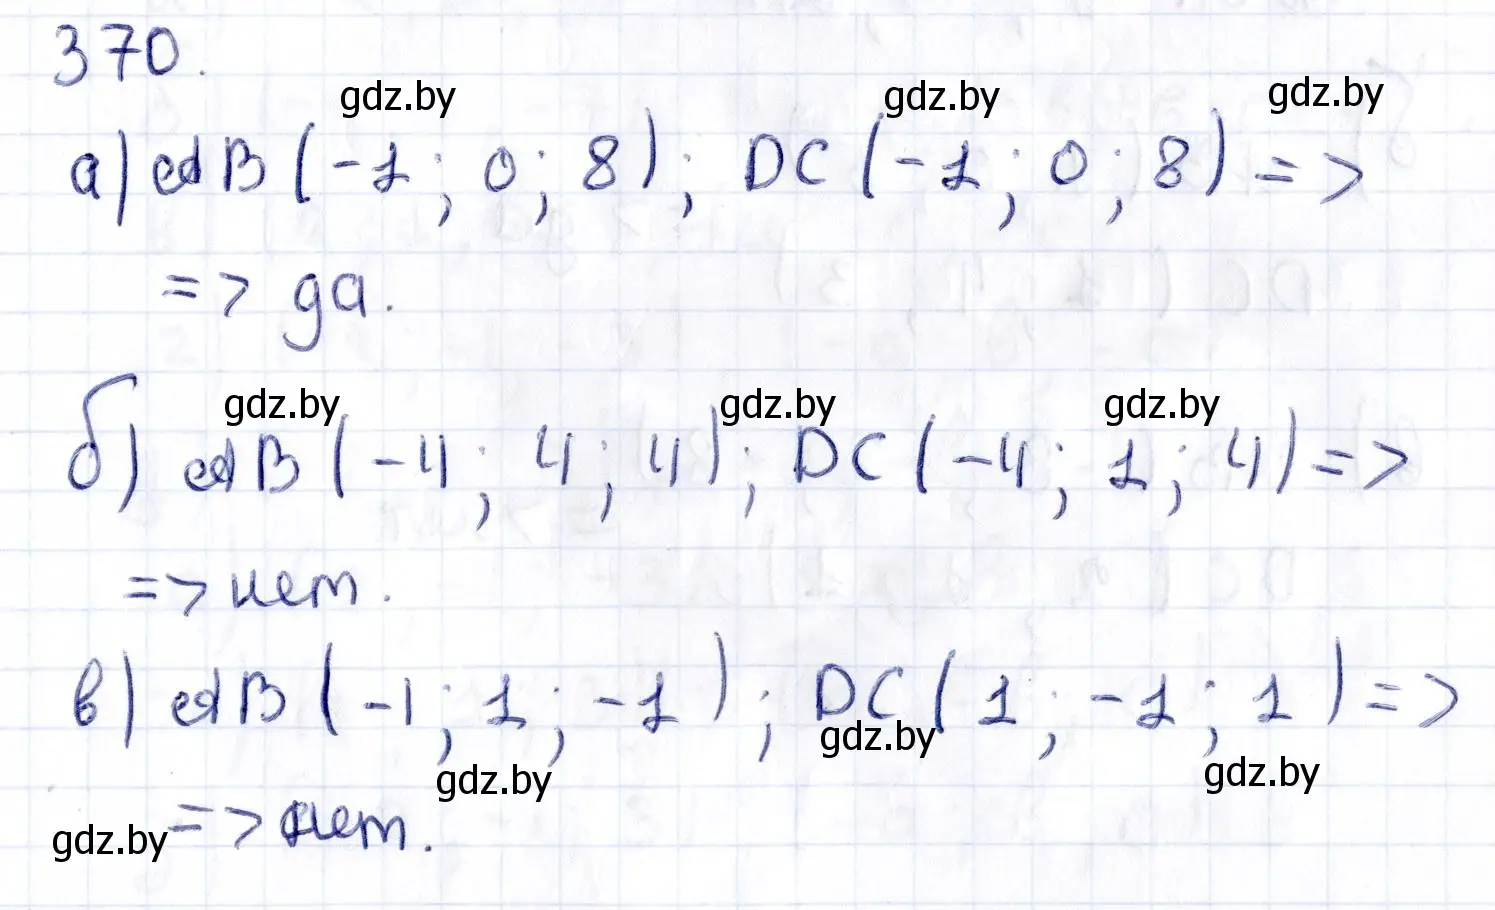 370.
gdz.by gdz.by gdz.by
а) AB (-1; 0; 8); DC (-1; 0; 8) =>
=> да.
gdz.by gdz.by gdz.by
б) AB (-4; 4; 4); DC (-4; 1; 4) =>
=> нет.
в) AB (-1; 1; -1); DC (1; -1; 1) =>
gdz.by gdz.by gdz.by
=> нет.
gdz.by